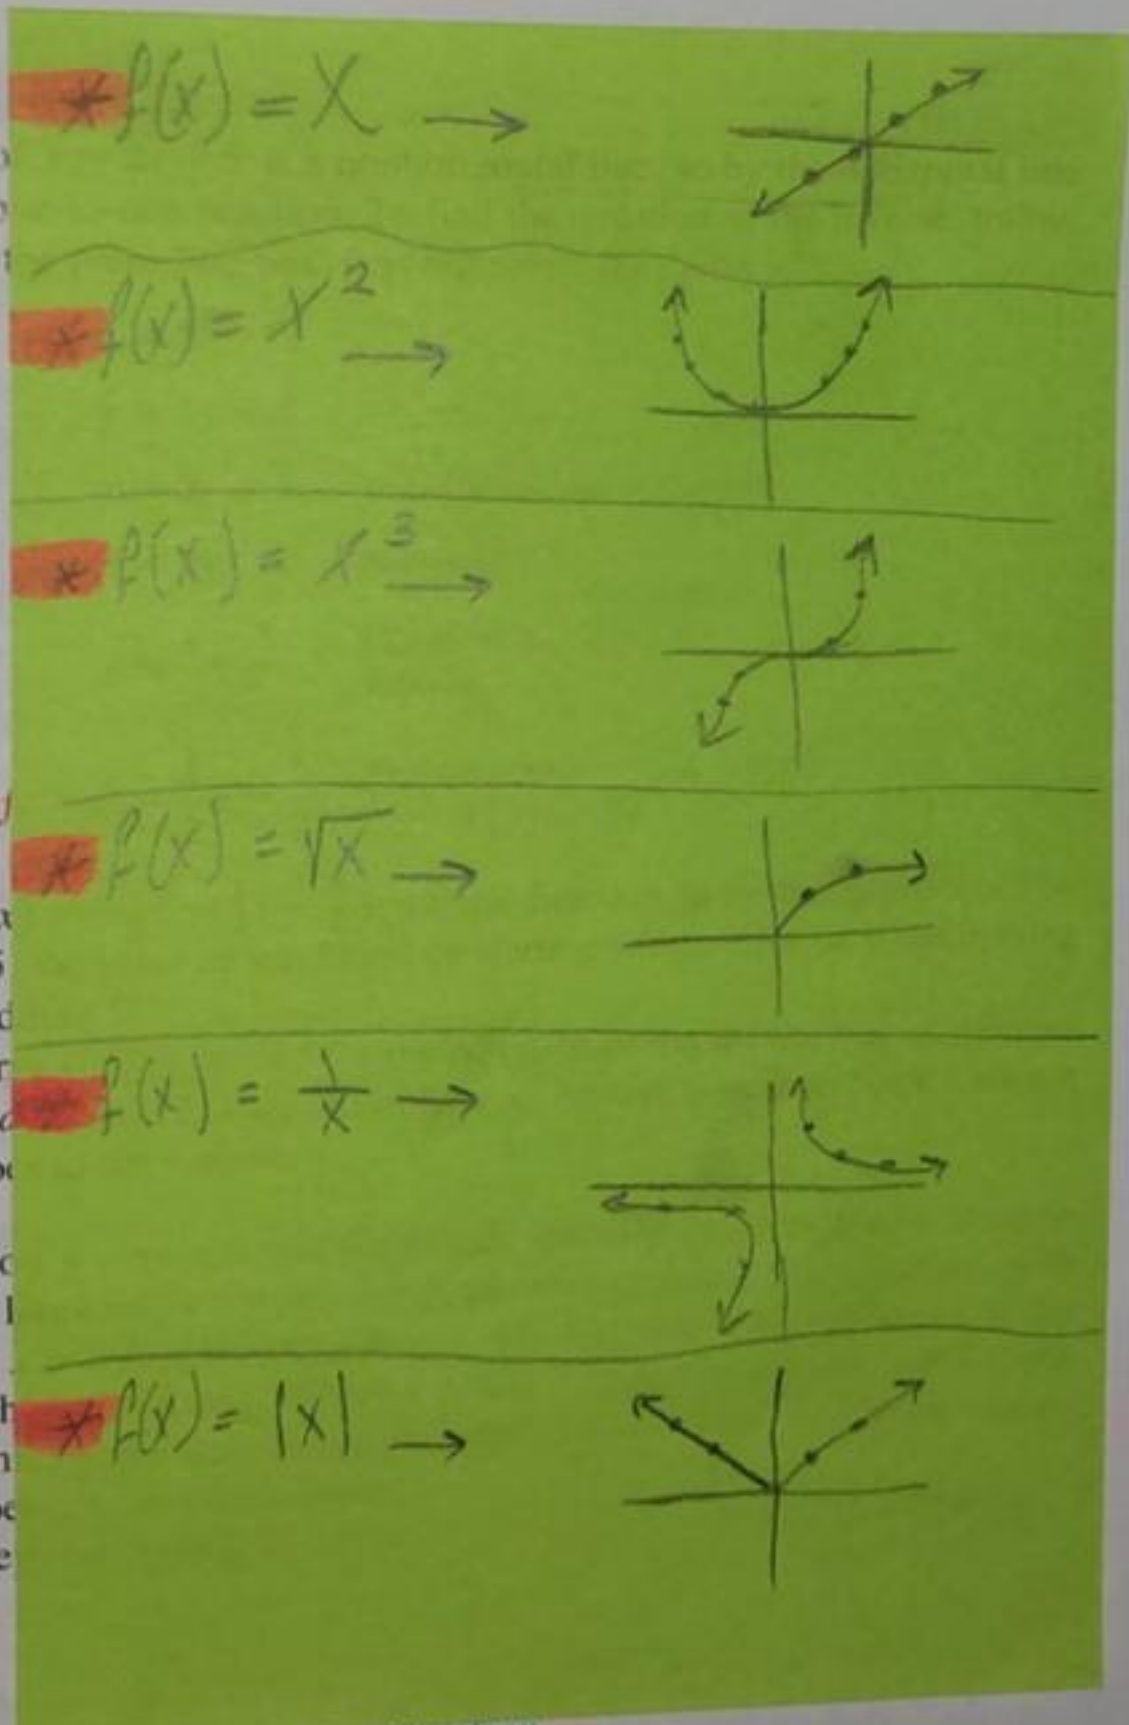 * f(x) = X →
* f(x) = X² →
* f(x) = X³ →
* f(x) = √x →
* f(x) = 1/x →
* f(x) = |x| →